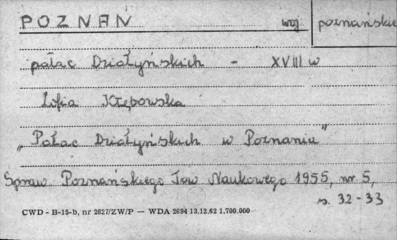 POZNAŃ woj. poznańskie
pałac Działyńskich - XVIII w
Zofia Kłępowska
"Pałac Działyńskich w Poznaniu"
Spraw. Poznańskiego Tow Naukowego 1955, nr 5,
s. 32-33
CWD - B-15-b, nr 2827/ZW/P — WDA 2694 13.12.62 1.700.000